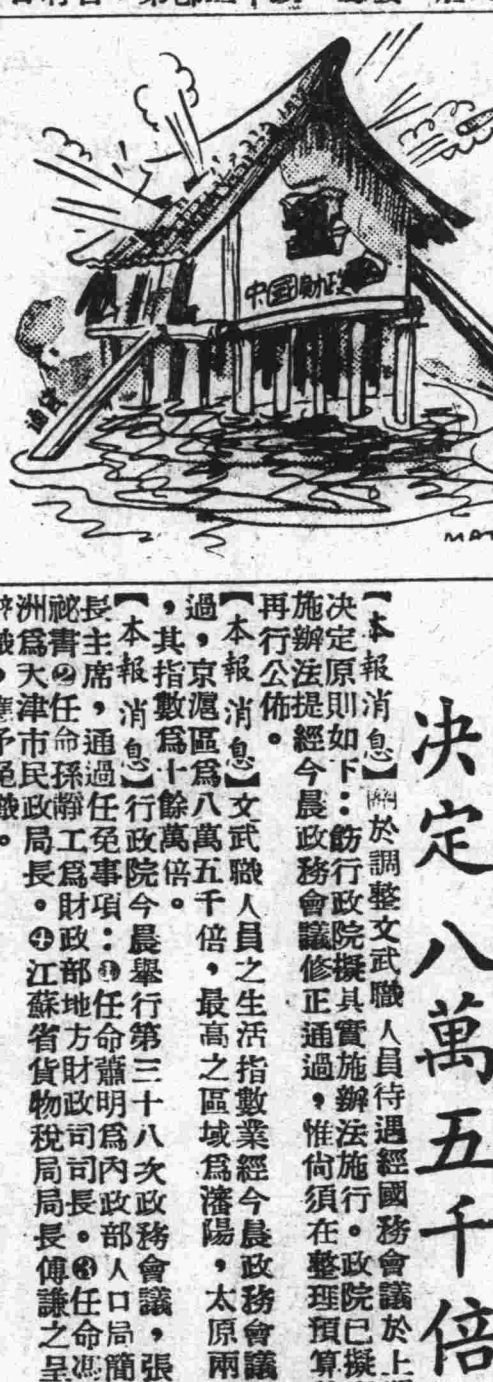 中國財政
通貨
MAT
决定八萬五千倍
【本報消息】關於調整文武職人員待遇經國務會議於上
决定原則如下：飭行政院擬具實施辦法施行。政院已擬
施辦法提經今晨政務會議修正通過，惟尙須在整理預算
再行公佈。
【本報消息】文武職人員之生活指數業經今晨政務會議
過，京滬區爲八萬五千倍，最高之區域爲瀋陽，太原兩
，其指數爲十餘萬倍。
【本報消息】行政院今晨舉行第三十八次政務會議，張
長主席，通過任免事項：❶任命蕭明爲內政部人口局簡
祕書❷任命孫靜工爲財政部地方財政司司長。❸任命馮
洲爲大津市民政局長。❹江蘇省貨物稅局局長傅謙之呈
辭職，應予免職。